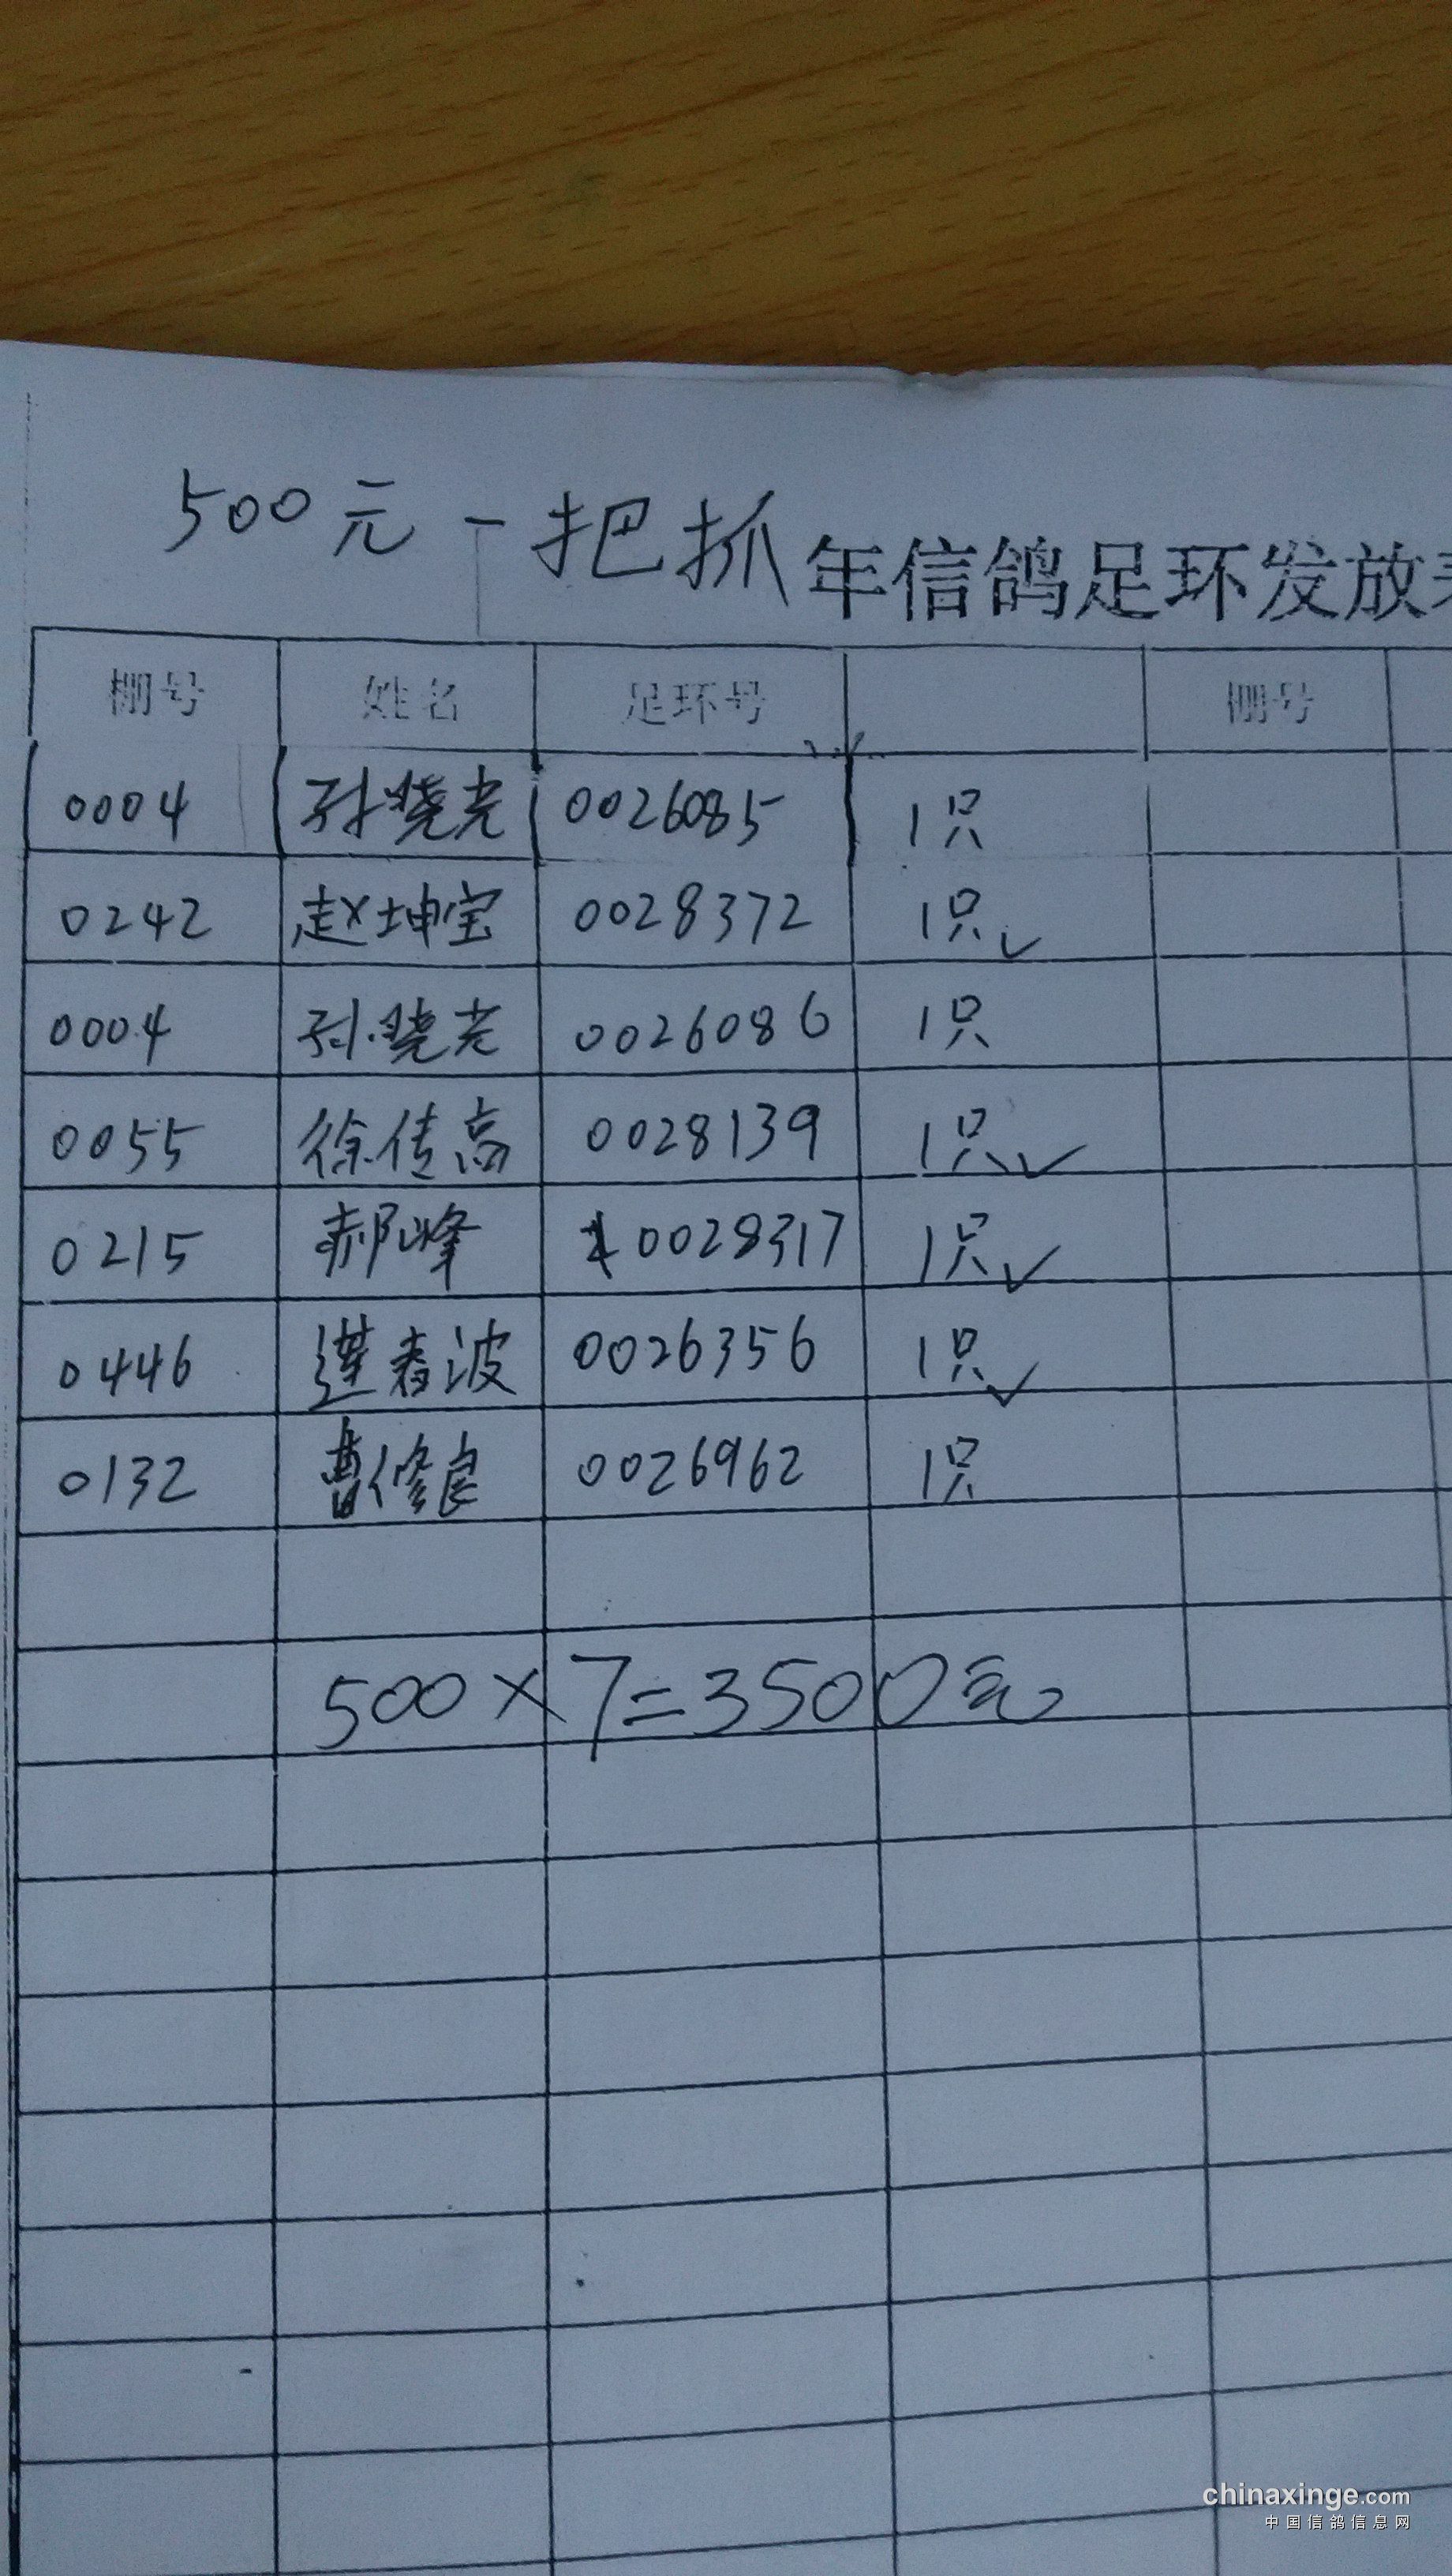 500元一把抓 年信鸽足环发放
棚号 姓名 足环号 棚号
0004 孙晓光 0026085 1只
0242 赵坤宝 0028372 1只✓
0004 孙晓光 0026086 1只
0055 徐传高 0028139 1只✓
0215 郝峰 0028317 1只✓
0446 春波 0026356 1只✓
0132 曹修良 0026962 1只
500×7=3500元
chinaxinge.com
中国信鸽信息网